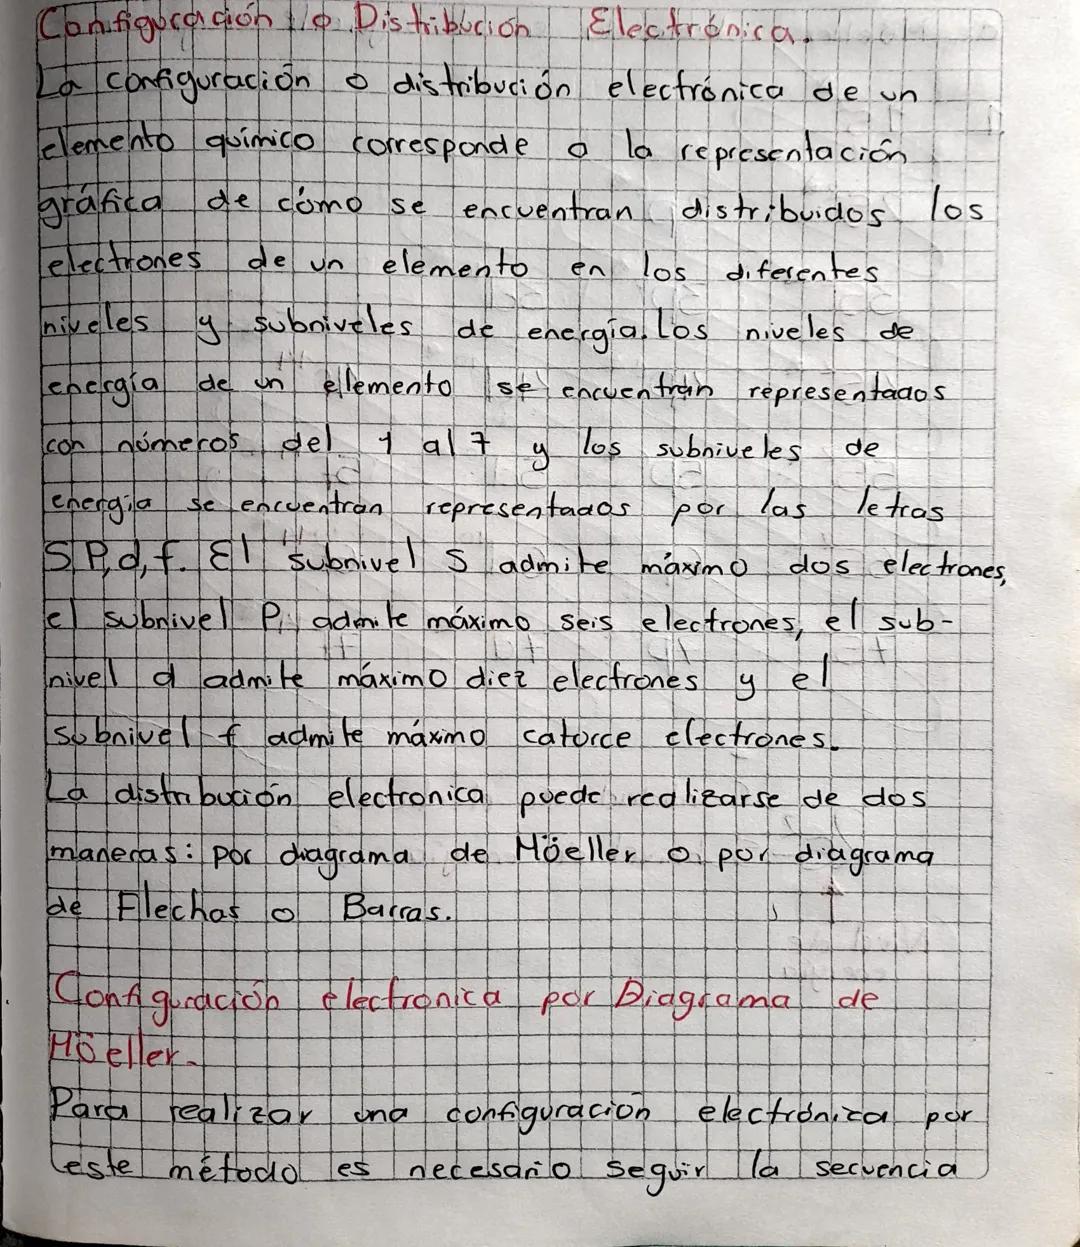 Configuración o Distribución Electrónica.
La configuración o distribución electrónica de un
elemento químico corresponde a la representación
gráfica de cómo se encuentran distribuidos los
electrones de un elemento en los diferentes
niveles y subniveles de energía. Los niveles de
energía de un elemento se encuentran representados
con números del 1 al 7 y los subniveles de
energía se encuentran representados por las letras
S, P, d, f. El subnivel S admite máximo dos electrones,
el subnivel P, admite máximo seis electrones, el sub-
nivel d admite máximo diez electrones y el
subnivel f admite máximo catorce electrones.
La distribución electronica puede realizarse de dos
maneras: por diagrama de Höeller o por diagrama
de Flechas o Barras.
Configuración electronica por Diagrama de
Höeller.
Para realizar una configuración electrónica por
este método es necesario seguir la secuencia